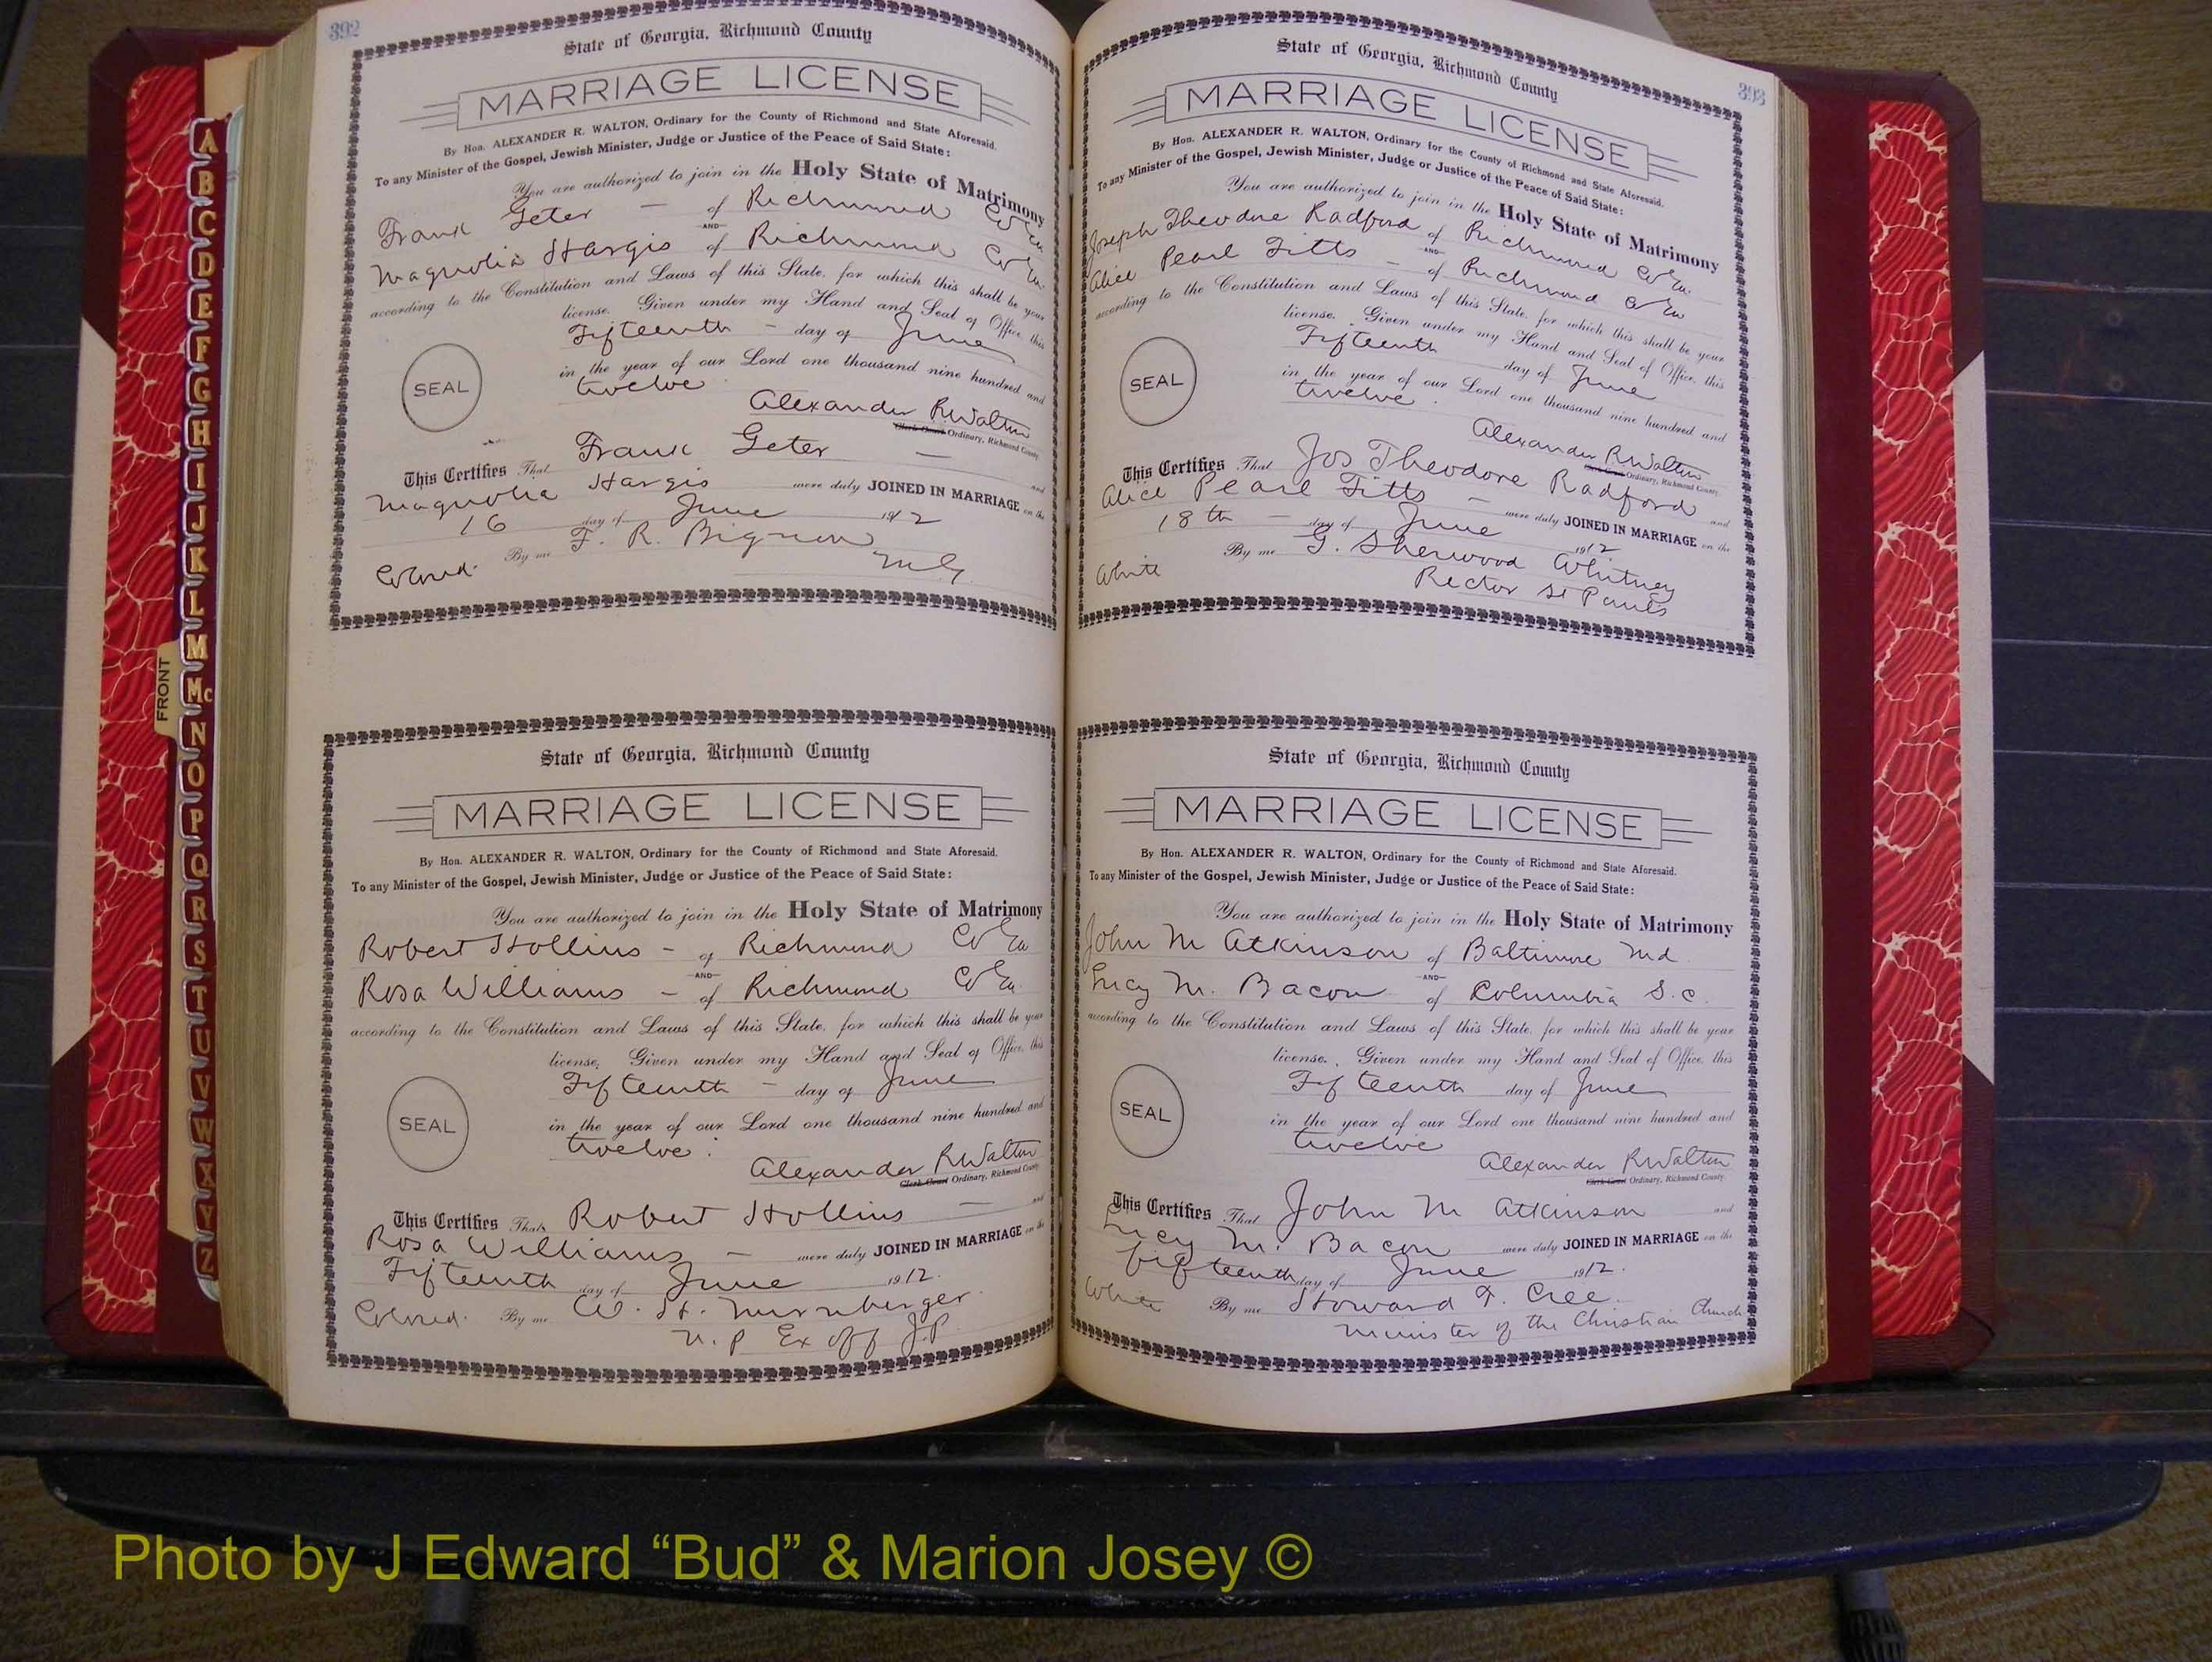 392
State of Georgia, Richmond County
MARRIAGE LICENSE
By Hon. ALEXANDER R. WALTON, Ordinary for the County of Richmond and State Aforesaid.
To any Minister of the Gospel, Jewish Minister, Judge or Justice of the Peace of Said State:
You are authorized to join in the Holy State of Matrimony
Frank Geter — of Richmond Co Ga.
AND
Magnolia Hargis of Richmond Co Ga.
according to the Constitution and Laws of this State, for which this shall be your
license. Given under my Hand and Seal of Office, this
Fifteenth - day of June
in the year of our Lord one thousand nine hundred and
twelve
SEAL
Alexander R Walton
Clerk Court Ordinary, Richmond County
This Certifies That Frank Geter — and
Magnolia Hargis were duly JOINED IN MARRIAGE on the
16 day of June 1912
Colored. By me F. R. Bignon
M.G.
State of Georgia, Richmond County
MARRIAGE LICENSE
By Hon. ALEXANDER R. WALTON, Ordinary for the County of Richmond and State Aforesaid.
To any Minister of the Gospel, Jewish Minister, Judge or Justice of the Peace of Said State:
You are authorized to join in the Holy State of Matrimony
Robert Hollins - of Richmond Co Ga
AND
Rosa Williams - of Richmond Co Ga.
according to the Constitution and Laws of this State, for which this shall be your
license. Given under my Hand and Seal of Office, this
Fifteenth - day of June
in the year of our Lord one thousand nine hundred and
twelve.
SEAL
Alexander R Walton
Clerk Court Ordinary, Richmond County
This Certifies That Robert Hollins — and
Rosa Williams — were duly JOINED IN MARRIAGE on the
Fifteenth day of June 1912.
Colored. By me W. H. Nurnberger.
N. P Ex off J.P.
393
State of Georgia, Richmond County
MARRIAGE LICENSE
By Hon. ALEXANDER R. WALTON, Ordinary for the County of Richmond and State Aforesaid.
To any Minister of the Gospel, Jewish Minister, Judge or Justice of the Peace of Said State:
You are authorized to join in the Holy State of Matrimony
Joseph Theodore Radford of Richmond Co Ga.
AND
Alice Pearl Fitts - of Richmond Co Ga
according to the Constitution and Laws of this State, for which this shall be your
license. Given under my Hand and Seal of Office, this
Fifteenth day of June
in the year of our Lord one thousand nine hundred and
twelve.
SEAL
Alexander R Walton
Clerk Court Ordinary, Richmond County
This Certifies That Jos Theodore Radford and
Alice Pearl Fitts — were duly JOINED IN MARRIAGE on the
18th — day of June 1912.
White By me G. Sherwood Whitney
Rector St Pauls
State of Georgia, Richmond County
MARRIAGE LICENSE
By Hon. ALEXANDER R. WALTON, Ordinary for the County of Richmond and State Aforesaid.
To any Minister of the Gospel, Jewish Minister, Judge or Justice of the Peace of Said State:
You are authorized to join in the Holy State of Matrimony
John M Atkinson of Baltimore Md.
AND
Lucy M. Bacon of Columbia S.C.
according to the Constitution and Laws of this State, for which this shall be your
license. Given under my Hand and Seal of Office, this
Fifteenth day of June
in the year of our Lord one thousand nine hundred and
twelve
SEAL
Alexander R Walton
Clerk Court Ordinary, Richmond County
This Certifies That John M Atkinson and
Lucy M. Bacon were duly JOINED IN MARRIAGE on the
fifteenth day of June 1912.
White By me Howard T. Cree.
Minister of the Christian Church
FRONT
A
B
C
D
E
F
G
H
I
J
K
L
M
Mc
N
O
P
Q
R
S
T
U
V
W
X
Y
Z
Photo by J Edward “Bud” & Marion Josey ©